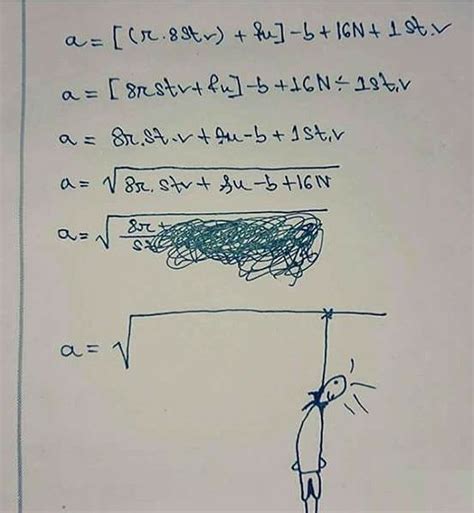 a = [(r.8st.v) + fu] - b + 16N + 1st.v
a = [8rstv + fu] - b + 16N ÷ 1st.v
a = 8r.st.v + fu - b + 1st.v
a = √8r.stv + fu - b + 16N
a = √8r
st
a = √